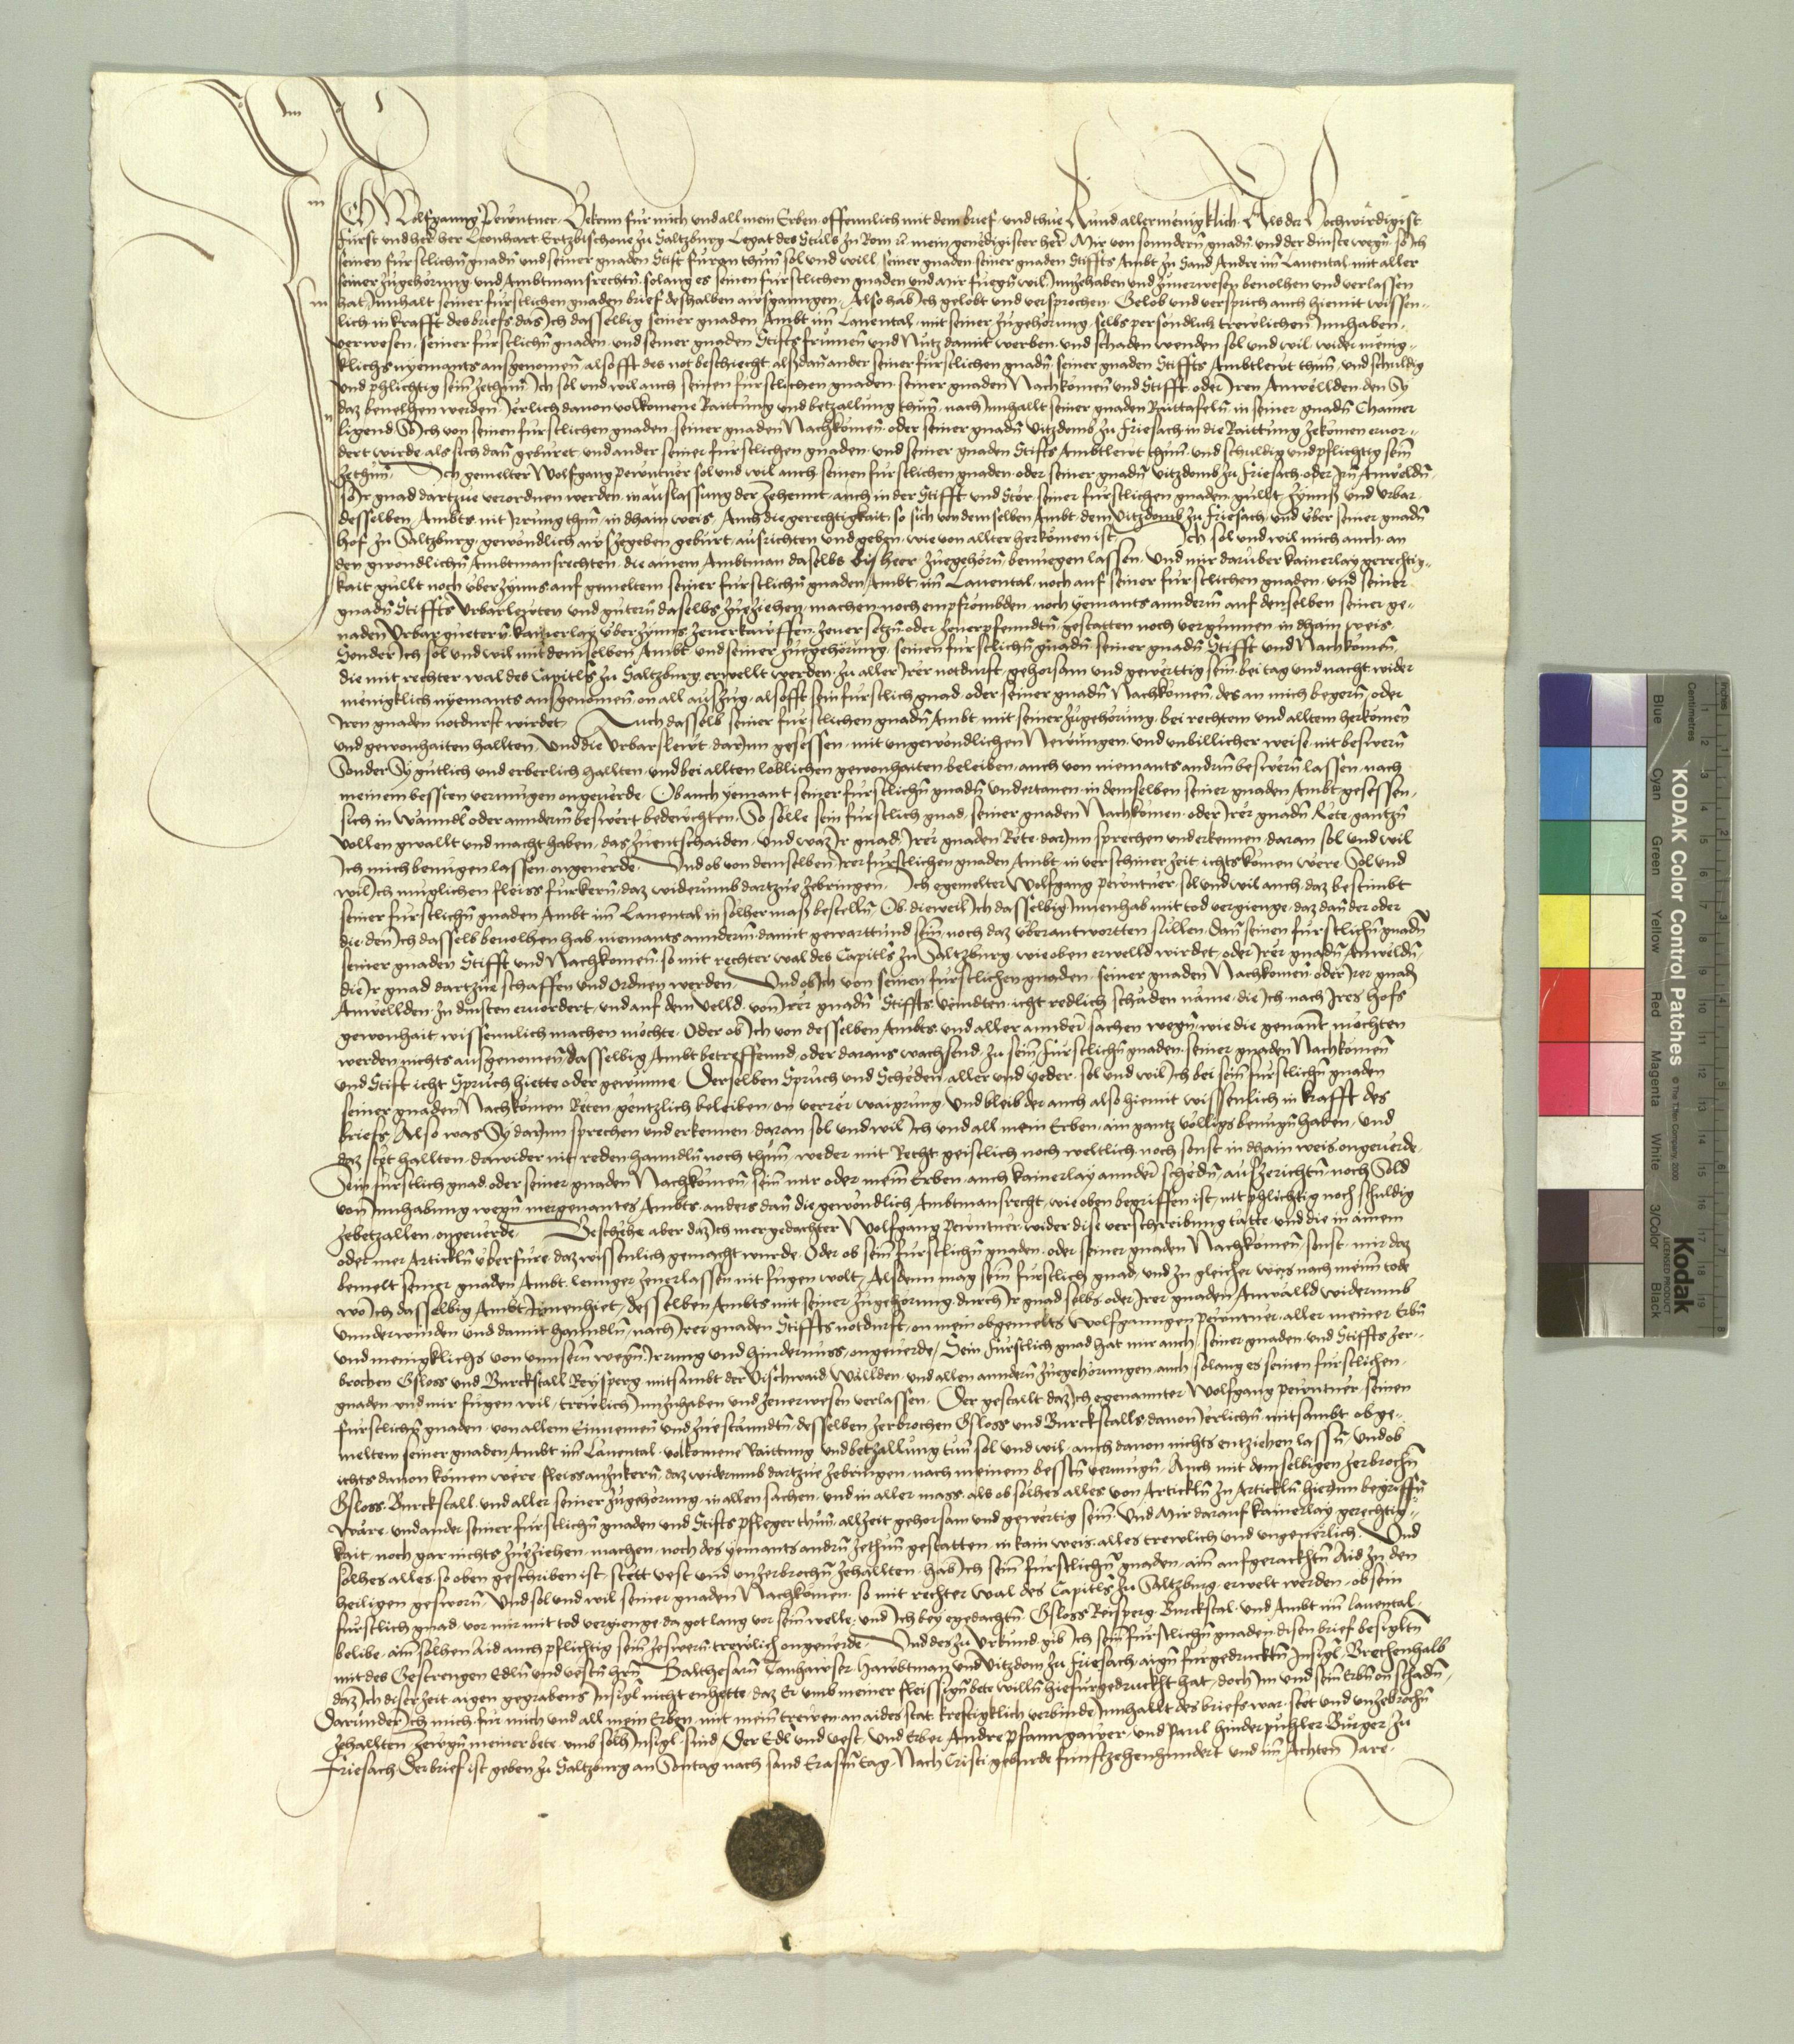 Ich Wolfganng Pewntner Bekenn fur mich und all mein Erben offennlich mit dem brief und thue kund allermenigklich Als der Hochwirdigist
Fürst und her her Leonhart Ertzbischoue zu Saltzburg Legat des Stuls zu Rom mein genedigister her Mir von sonndern gnadn und der dinste wegn so Ich
seinen furstlichn gnadn und seiner gnaden Stift furan thun sol und will seiner gnaden seiner gnaden Stiffts Ambt zu Sand Andre im Lauental mit aller
seiner zugehorung und Ambtmansrechtn solang es seinen furstlichen gnaden und mir fuegn wil Innzehaben und zuuerwesen beuolhen und verlassen
hat Innhalt seiner furstlichen gnaden brief deshalben ausganngen Also hab Ich gelobt und versprochen Gelob und versprich auch hiemit wissen-
lich in krafft des briefs das Ich dasselbig seiner gnaden Ambt im Lauental mit seiner zugehorung selbs persondlich trewlichen Innhaben
verwesen seiner furstlichn gnaden und seiner gnaden Stiffts frumen und Nutz damit werben und schaden wenden sol und wil wider menig-
klichs nyemants ausgenomen als offt des not beschiecht als dan ander seiner furstlichen gnadn seiner gnaden Stiffts Ambtlewt thun und schuldig
und phlichtig sein zethun Ich sol und wil auch seinen furstlichen gnaden seiner gnaden Nachkomen und Stifft oder Iren Anwellden den Sy
daz beuelhen werden Jerlich dauon volkomene Raittung und betzallung thun nach Innhallt seiner gnaden Raittafeln in seiner gnadn Chamer
ligend So Ich von seinen furstlichen gnaden seiner gnaden Nachkomen oder seiner gnadn Vitzdomb zu Friesach in die Raittung zekomen eruor-
dert wirde als sich dan geburet und ander seiner furstlichen gnaden und seiner gnaden Stiffts Ambtlewt thun und schuldig und pflichtig sein
zethun Ich gemelter Wolfgang pewntner sol und wil auch seinen furstlichen gnaden oder seiner gnadn Vitzdomb zu Friesach oder Irn Anwelden
so Ir gnad dartzue verordnen werden in auslassung der Zehennt auch in der Stifft und Stor seiner furstlichen gnaden gullt Zynns und Urbar
desselben Ambts nit Irrung thun in dhain weis Auch die gerechtigkait so sich von demselben Ambt dem Vitzdomb zu Friesach und uber seiner gnadn
hof zu Saltzburg gewondlich auszegeben geburt ausrichten und geben wie von allter herkomen ist Ich sol und wil mich auch an
den gwondlichn Ambtmansrechten die ainem Ambtman daselbs bisheer zuegehorn benuegen lassen Und mir daruber kainerlay gerechtig-
kait gullt noch uber Zynns auf gemeltem seiner furstlichn gnaden Ambt im Lauental noch auf seiner furstlichen gnaden und seiner
gnadn Stiffts Urbarlewten und gutern daselbs zueziehen machen noch empfrombden noch yemants anndern auf denselben seiner ge-
naden Urbarguetern kainerlay uber Zynns zuuerkauffen zuuersetzn oder zuuerpfenndtn gestatten noch vergunnen in dhain weis
Sonder Ich sol und wil mit demselben Ambt und seiner zuegehorung seinen furstlichn gnadn seiner gnadn Stifft und Nachkomen
die mit rechter wal des Capitls zu Saltzburg erwellt werden zu aller Irer notdurft gehorsam und gewerttig sein bei tag und nacht wider
menigklich nyemants ausgenomen on all auszug als offt sein furstlich gnad oder seiner gnadn Nachkomen des an mich begern oder
Iren gnaden notdurft wirdet Auch dasselb seiner furstlichen gnadn Ambt mit seiner zugehorung bei rechtem und alltem herkomen
und gewonhaiten hallten Und die Urbarslewt darinn gesessen mit ungewondlichen Newungen und unbillicher weise nit beswern
Sonder Sy gutlich und erberlich hallten und bei allten loblichen gewonhaiten beleiben auch von niemants andern beswern lassen nach
meinem bessten vermugen ongeuerde Ob auch yemant seiner furstlichn gnadn undertanen in demselben seiner gnaden Ambt gesessen
sich in Wanndl oder anndern beswert bedewchten So solle sein furstlich gnad seiner gnaden Nachkomen oder Irer gnadn Rete gantzn
vollen gwallt und macht haben das zuentschaiden Und waz Ir gnad Irer gnaden Rete darinn sprechen und erkennen daran sol und wil
Ich mich benugen lassen ongeuerde Und ob von demselben Irer furstlichen gnaden Ambt in verschiner zeit ichts komen were Sol und
wil Ich muglichen fleiss furkern daz widerumb dartzue zebringen Ich egemelter Wolfgang pewntner sol und wil auch daz bestimbt
seiner furstlichn gnaden Ambt im Lauental in solher mass bestelln Ob dieweil Ich dasselbig Innenhab mit tod vergienge daz dan der oder
die den Ich dasselb beuolhen hab niemants anndern damit gewarttund sein noch daz uberantwortten sullen dan seinen furstlichn gnadn
seiner gnaden Stifft und Nachkomen so mit rechter wal des Capitls zu Saltzburg wie oben erwelld wirdet oder Irer gnadn Anweldn
die Ir gnad dartzue schaffen und ordnen werden Und ob Ich von seinen furstlichen gnaden seiner gnaden Nachkomen oder Irer gnadn
Anwellden zu dinsten eruordert und auf dem velld von Irer gnadn Stiffts veindten icht redlich schaden name die Ich nach Ires hofs
gewonhait wissenntlich machen mochte Oder ob Ich von desselben Ambts und aller annder sachen wegn wie die genant mochten
werden nichts ausgenomen dasselbig Ambt betreffennd oder daraus wachsend zu sein furstlichn gnaden seiner gnaden Nachkomen
und Stift icht Spruch hiette oder gewunne Derselben Spruch und Scheden aller und yeder sol und wil Ich bei sein furstlichn gnaden
seiner gnaden Nachkomen Reten gentzlich beleiben on verrer waigrung Und bleib der auch also hiemit wissenlich in krafft des
briefs Also was Sy darinn sprechen und erkennen daran sol und wil Ich und all mein Erben ain gantz volligs benugn haben und
daz stet hallten dawider nit reden hanndln noch thun weder mit Recht geistlich noch weltlich noch sonst in dhain weis ongeuerde
Sein furstlich gnad oder seiner gnaden Nachkomen sein mir oder mein Erben auch kainerlay annder schedn auszerichtn noch Sold
von Innhabung wegn mergenantes Ambts anders dan die gewondlich Ambtmansrecht wie oben begriffen ist nit phlichtig noch schuldig
zebetzallen ongeuerde Beschehe aber daz Ich mergedachter Wolfgang pewntner wider dise verschreibung tatte und die in ainem
oder mer Artickln uberfure daz wissenlich gemacht wurde Oder ob sein furstlichn gnaden oder seiner gnaden Nachkomen sonst mir daz
bemelt seiner gnaden Ambt lennger zuuerlassen nit fugen wolt Alsdenn mag sein furstlich gnad und zu gleicher weis nach meinem tode
wo Ich dasselbig Ambt Innenhiet desselben Ambts mit seiner zugehorung durch Ir gnad selbs oder Irer gnaden Anwälld widerumb
unnderwinden und damit hanndln nach Irer gnaden Stiffts notdurft on mein obgemelts Wolfganngen pewntner aller meiner Erbn
und menigklichs von unnsern wegn Irrung und hindernuss ongeuerde Sein furstlich gnad hat mir auch seiner gnaden und Stiffts zer-
brochen Gsloss und Burckstall Reysperg mitsambt der Vischwaid Wällden und allen anndern zuegehorungen auch solang es seinen furstlichen
gnaden und mir fugen wil trewlich Innzuhaben und zuuerwesen verlassen Der gestallt daz Ich egenannter Wolfgang pewntner seinen
furstlichn gnaden von allem Einnemen und zuestanndtn desselben zerbrochen Gsloss und Burckstalls dauon Jerlichn mitsambt obge-
meltem seiner gnaden Ambt im Lauental volkomene Raittung und betzallung tun sol und wil auch dauon nichts entziehen lassn und ob
ichts dauon komen were fleiss anzukern daz widerumb dartzue zebringen nach meinem besstn vermugn Auch mit demselbigen zerbrochn
Gsloss Burckstall und aller seiner zugehorung in allen sachen und in aller mass als ob solhes alles von Artickln zu Artickln hierinn begriffn
wäre und ander seiner furstlichn gnaden und Stifts pfleger thun allzeit gehorsam und gewertig sein Und Mir darauf kainerlay gerechtig-
kait noch gar nichts zueziehen machen noch des yemants andrn zethun gestatten in kain weis alles trewlich und ungeuerlich Und
solhes alles so oben geschriben ist stett vest und unzerbrochn zehallten hab Ich sein furstlichn gnaden ain aufgerackhtn Aid zu den
heiligen gesworn Und sol und wil seiner gnaden Nachkomen so mit rechter wal des Capitls zu Saltzburg erwelt werden ob sein
furstlich gnad vor mir mit tod vergienge da got lang vor sein welle und Ich bey egedachtn Gsloss Reisperg Burckstal und Ambt im lauental
belibe ain solhen Aid auch pflichtig sein zeswern trewlich ongeuerde Und des zu Urkund gib Ich sein furstlichn gnaden disen brief besigltn
mit des Gestrengen Edln und vestn hern Balthesarn Tanhawser Hawbtman und Vitzdom zu Friesach aign furgedrucktn Insigl Brechenhalb
daz Ich diser zeit aigen gegrabens Insigl nicht enhette daz Er umb meiner fleissign bete willn hiefurgedruckht hat doch Im und sein Erbn on schadn
Darunder Ich mich fur mich und all mein Erben mit mein trewen an aides stat kreftigklich verbinde Innhallt des briefs war stet und unzebrochn
zehallten Zewgn meiner bete umb solh Insigl sind Der Edl und vest Und Erber Andre Pfanngawer und Paul hinderpuhler Burger zu
Friesach Der brief ist geben zu Saltzburg an Sontag nach sand Erasm tag Nach Cristi geburde funftzehenhundert und im Achten Jare